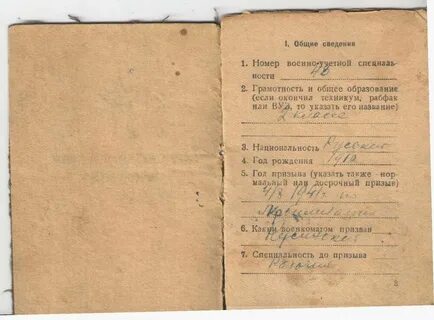 I. Общие сведения
1. Номер военно-учетной специаль-
ности 48
2. Грамотность и общее образование
(если окончил техникум, рабфак
или ВУЗ, то указать его название)
2 класса
3. Национальность Русский
4. Год рождения
5. Год призыва (указать также нор-
мальный или досрочный призыв)
1941 г.
6. Каким военкоматом призван
7. Специальность до призыва
3